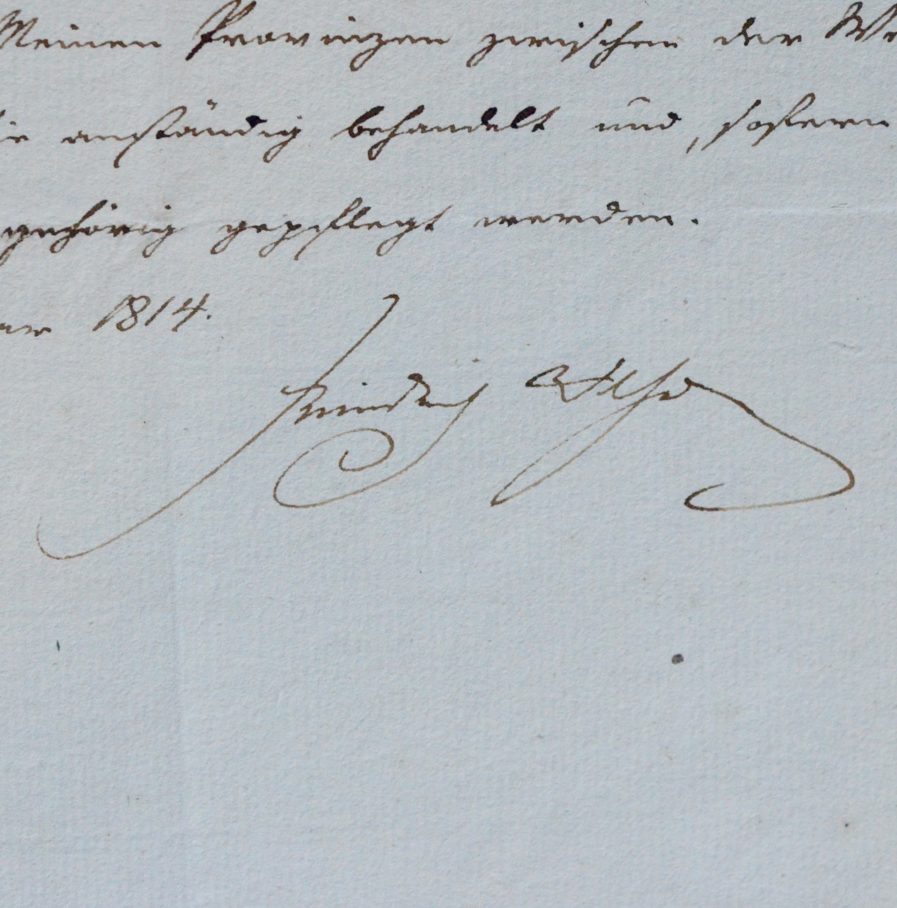 Meinen Provinzen zwischen der We
ie anständig behandelt und, sofern
gehörig gepflegt werden.
ar 1814.
Friedrich Wilhelm